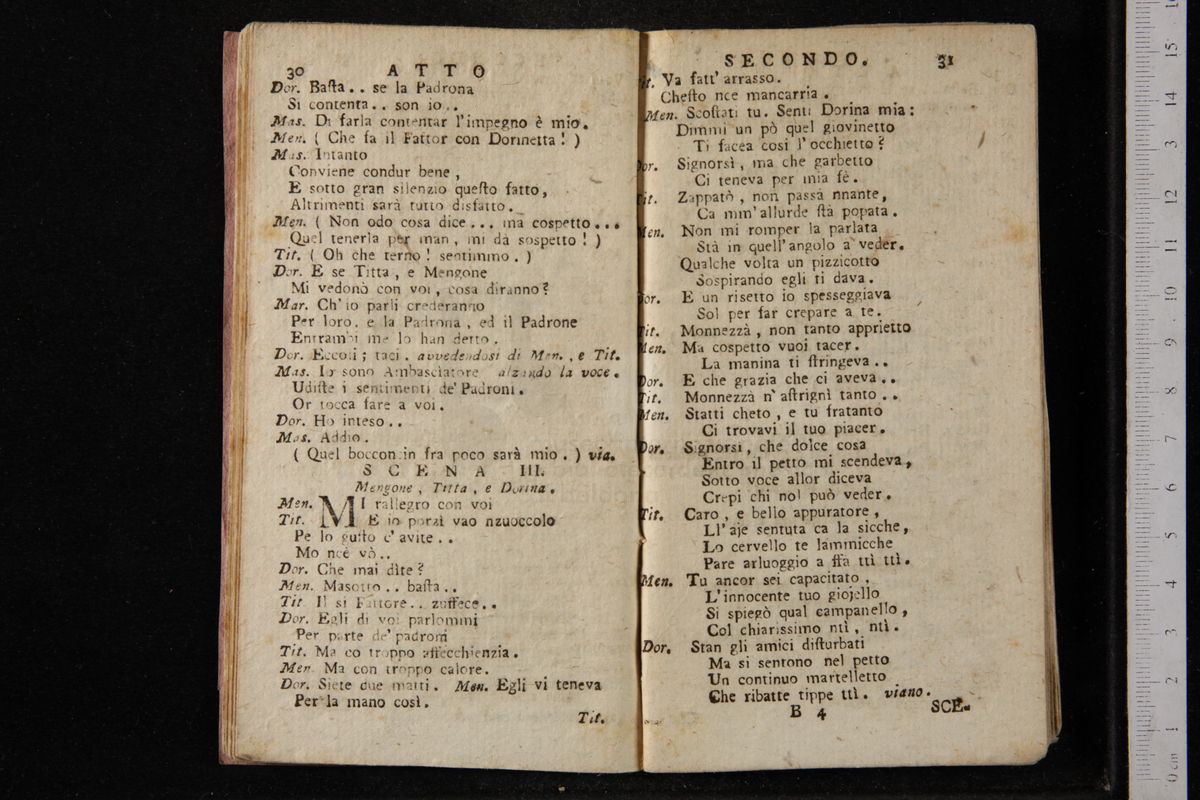 30 ATTO
Dor. Baſta.. se la Padrona
Si contenta.. son io..
Mas. Di farla contentar l'impegno è mio.
Men. ( Che fa il Fattor con Dorinetta! )
Mas. Intanto
Conviene condur bene,
E sotto gran silenzio queſto fatto,
Altrimenti sarà tutto disfatto.
Men. ( Non odo cosa dice... ma cospetto...
Quel tenerla per man, mi dà sospetto! )
Tit. ( Oh che terno! sentimmo. )
Dor. E se Titta, e Mengone
Mi vedonò con voi, cosa diranno?
Mar. Ch'io parli crederanno
Per loro, e la Padrona, ed il Padrone
Entrambi me lo han detto.
Dor. Eccoli; taci. avvedendosi di Men., e Tit.
Mas. Io sono Ambasciatore alzando la voce.
Udiſte i sentimenti de' Padroni.
Or tocca fare a voi.
Dor. Ho inteso..
Mas. Addio.
( Quel boccon in fra poco sarà mio. ) via.
SCENA III.
Mengone, Titta, e Dorina.
Men. MI rallegro con voi
Tit. E io porzì vao nzuoccolo
Pe lo guſto c'avite..
Mo nce vò..
Dor. Che mai dìte?
Men. Masotto.. baſta..
Tit. Il si Fattore.. zuffece..
Dor. Egli di voi parlommi
Per parte de' padroni
Tit. Ma co troppo affecchienzia.
Men. Ma con troppo calore.
Dor. Siete due matti. Men. Egli vi teneva
Per la mano così.
Tit.
SECONDO. 31
Tit. Va fatt' arrasso.
Cheſto nce mancarria.
Men. Scoſtati tu. Senti Dorina mia:
Dimmi un pò quel giovinetto
Ti facea così l'occhietto?
Dor. Signorsì, ma che garbetto
Ci teneva per mia fè.
Tit. Zappatò, non passà nnante,
Ca mm' allurde ſtà popata.
Men. Non mi romper la parlata
Stà in quell' angolo a veder.
Qualche volta un pizzicotto
Sospirando egli ti dava.
Dor. E un risetto io spesseggiava
Sol per far crepare a te.
Tit. Monnezzà, non tanto apprietto
Men. Ma cospetto vuoi tacer.
La manina ti ſtringeva..
Dor. E che grazia che ci aveva..
Tit. Monnezzà n' aſtrignì tanto..
Men. Statti cheto, e tu fratanto
Ci trovavi il tuo piacer.
Dor. Signorsì, che dolce cosa
Entro il petto mi scendeva,
Sotto voce allor diceva
Crepi chi nol può veder.
Tit. Caro, e bello appuratore,
Ll' aje sentuta ca la sicche,
Lo cervello te lammicche
Pare arluoggio a ffà ttì ttì.
Men. Tu ancor sei capacitato,
L'innocente tuo giojello
Si spiegò qual campanello,
Col chiarissimo ntì, ntì.
Dor. Stan gli amici diſturbati
Ma si sentono nel petto
Un continuo martelletto
Che ribatte tippe ttì. viano.
B 4 SCE-